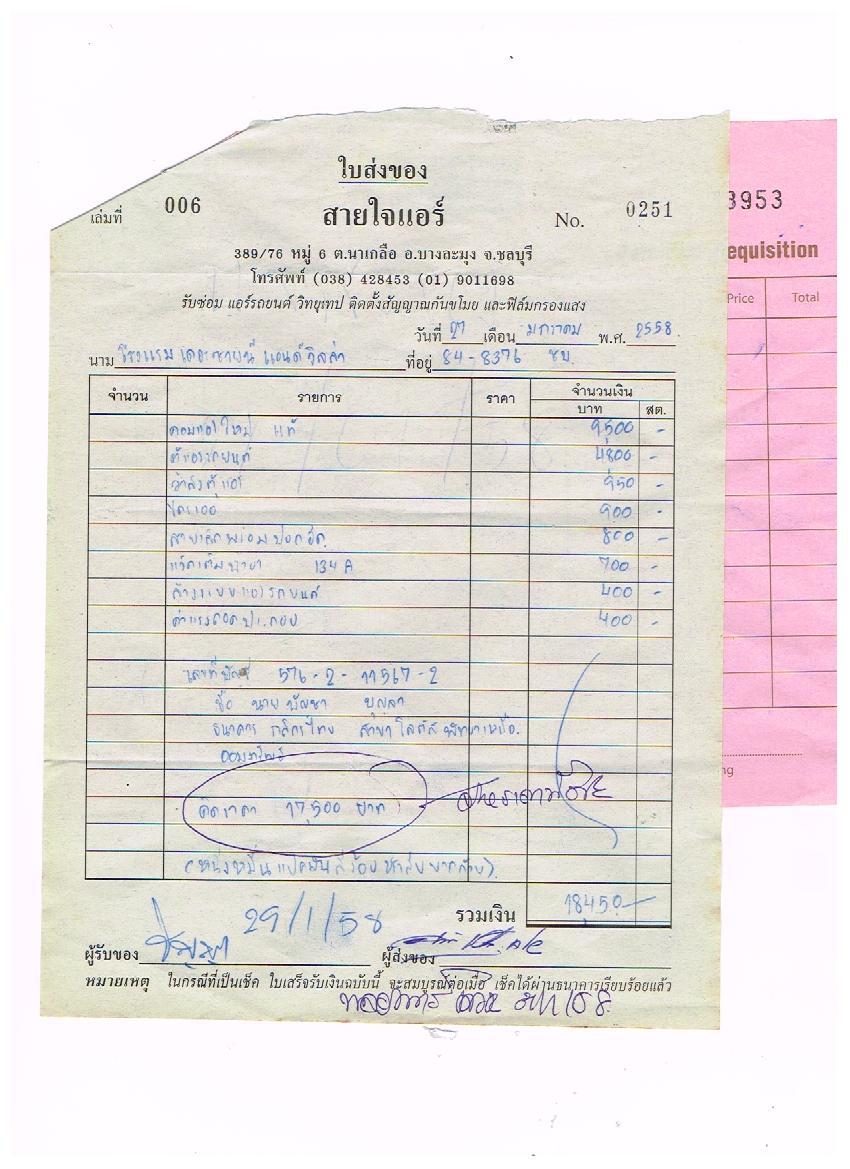 ใบส่งของ
เล่มที่ 006 สายใจแอร์ No. 0251
389/76 หมู่ 6 ต.นาเกลือ อ.บางละมุง จ.ชลบุรี
โทรศัพท์ (038) 428453 (01) 9011698
รับซ่อม แอร์รถยนต์ วิทยุเทป ติดตั้งสัญญาณกันขโมย และฟิล์มกรองแสง
วันที่ 27 เดือน มกราคม พ.ศ. 2558
นาม โรงแรม แอนด์วิลล่า ที่อยู่ 84-8376 ชบ.
จำนวน รายการ ราคา จำนวนเงิน
บาท สต.
คอมแอร์ใหม่ แท้ 9500 -
ตู้แอร์รถยนต์ 4800 -
วาล์วตู้แอร์ 950 -
ไดเออร์ 900 -
800 -
134A 700 -
ล้างระบบแอร์รถยนต์ 400 -
ค่าแรงถอดประกอบ 400 -
เลขที่บัญชี 576-2-11567-2
ชื่อ นาย บัญชา บุญลา
ธนาคาร กสิกรไทย สาขา โลตัส พัทยาเหนือ
ออมทรัพย์
คิดราคา 17,500 บาท
(หนึ่งหมื่นแปดพันสี่ร้อยห้าสิบบาทถ้วน)
รวมเงิน 18450 -
29/1/58
ผู้รับของ ผู้ส่งของ
หมายเหตุ ในกรณีที่เป็นเช็ค ใบเสร็จรับเงินฉบับนี้ จะสมบูรณ์ต่อเมื่อ เช็คได้ผ่านธนาคารเรียบร้อยแล้ว
3953
equisition
Price Total
ng